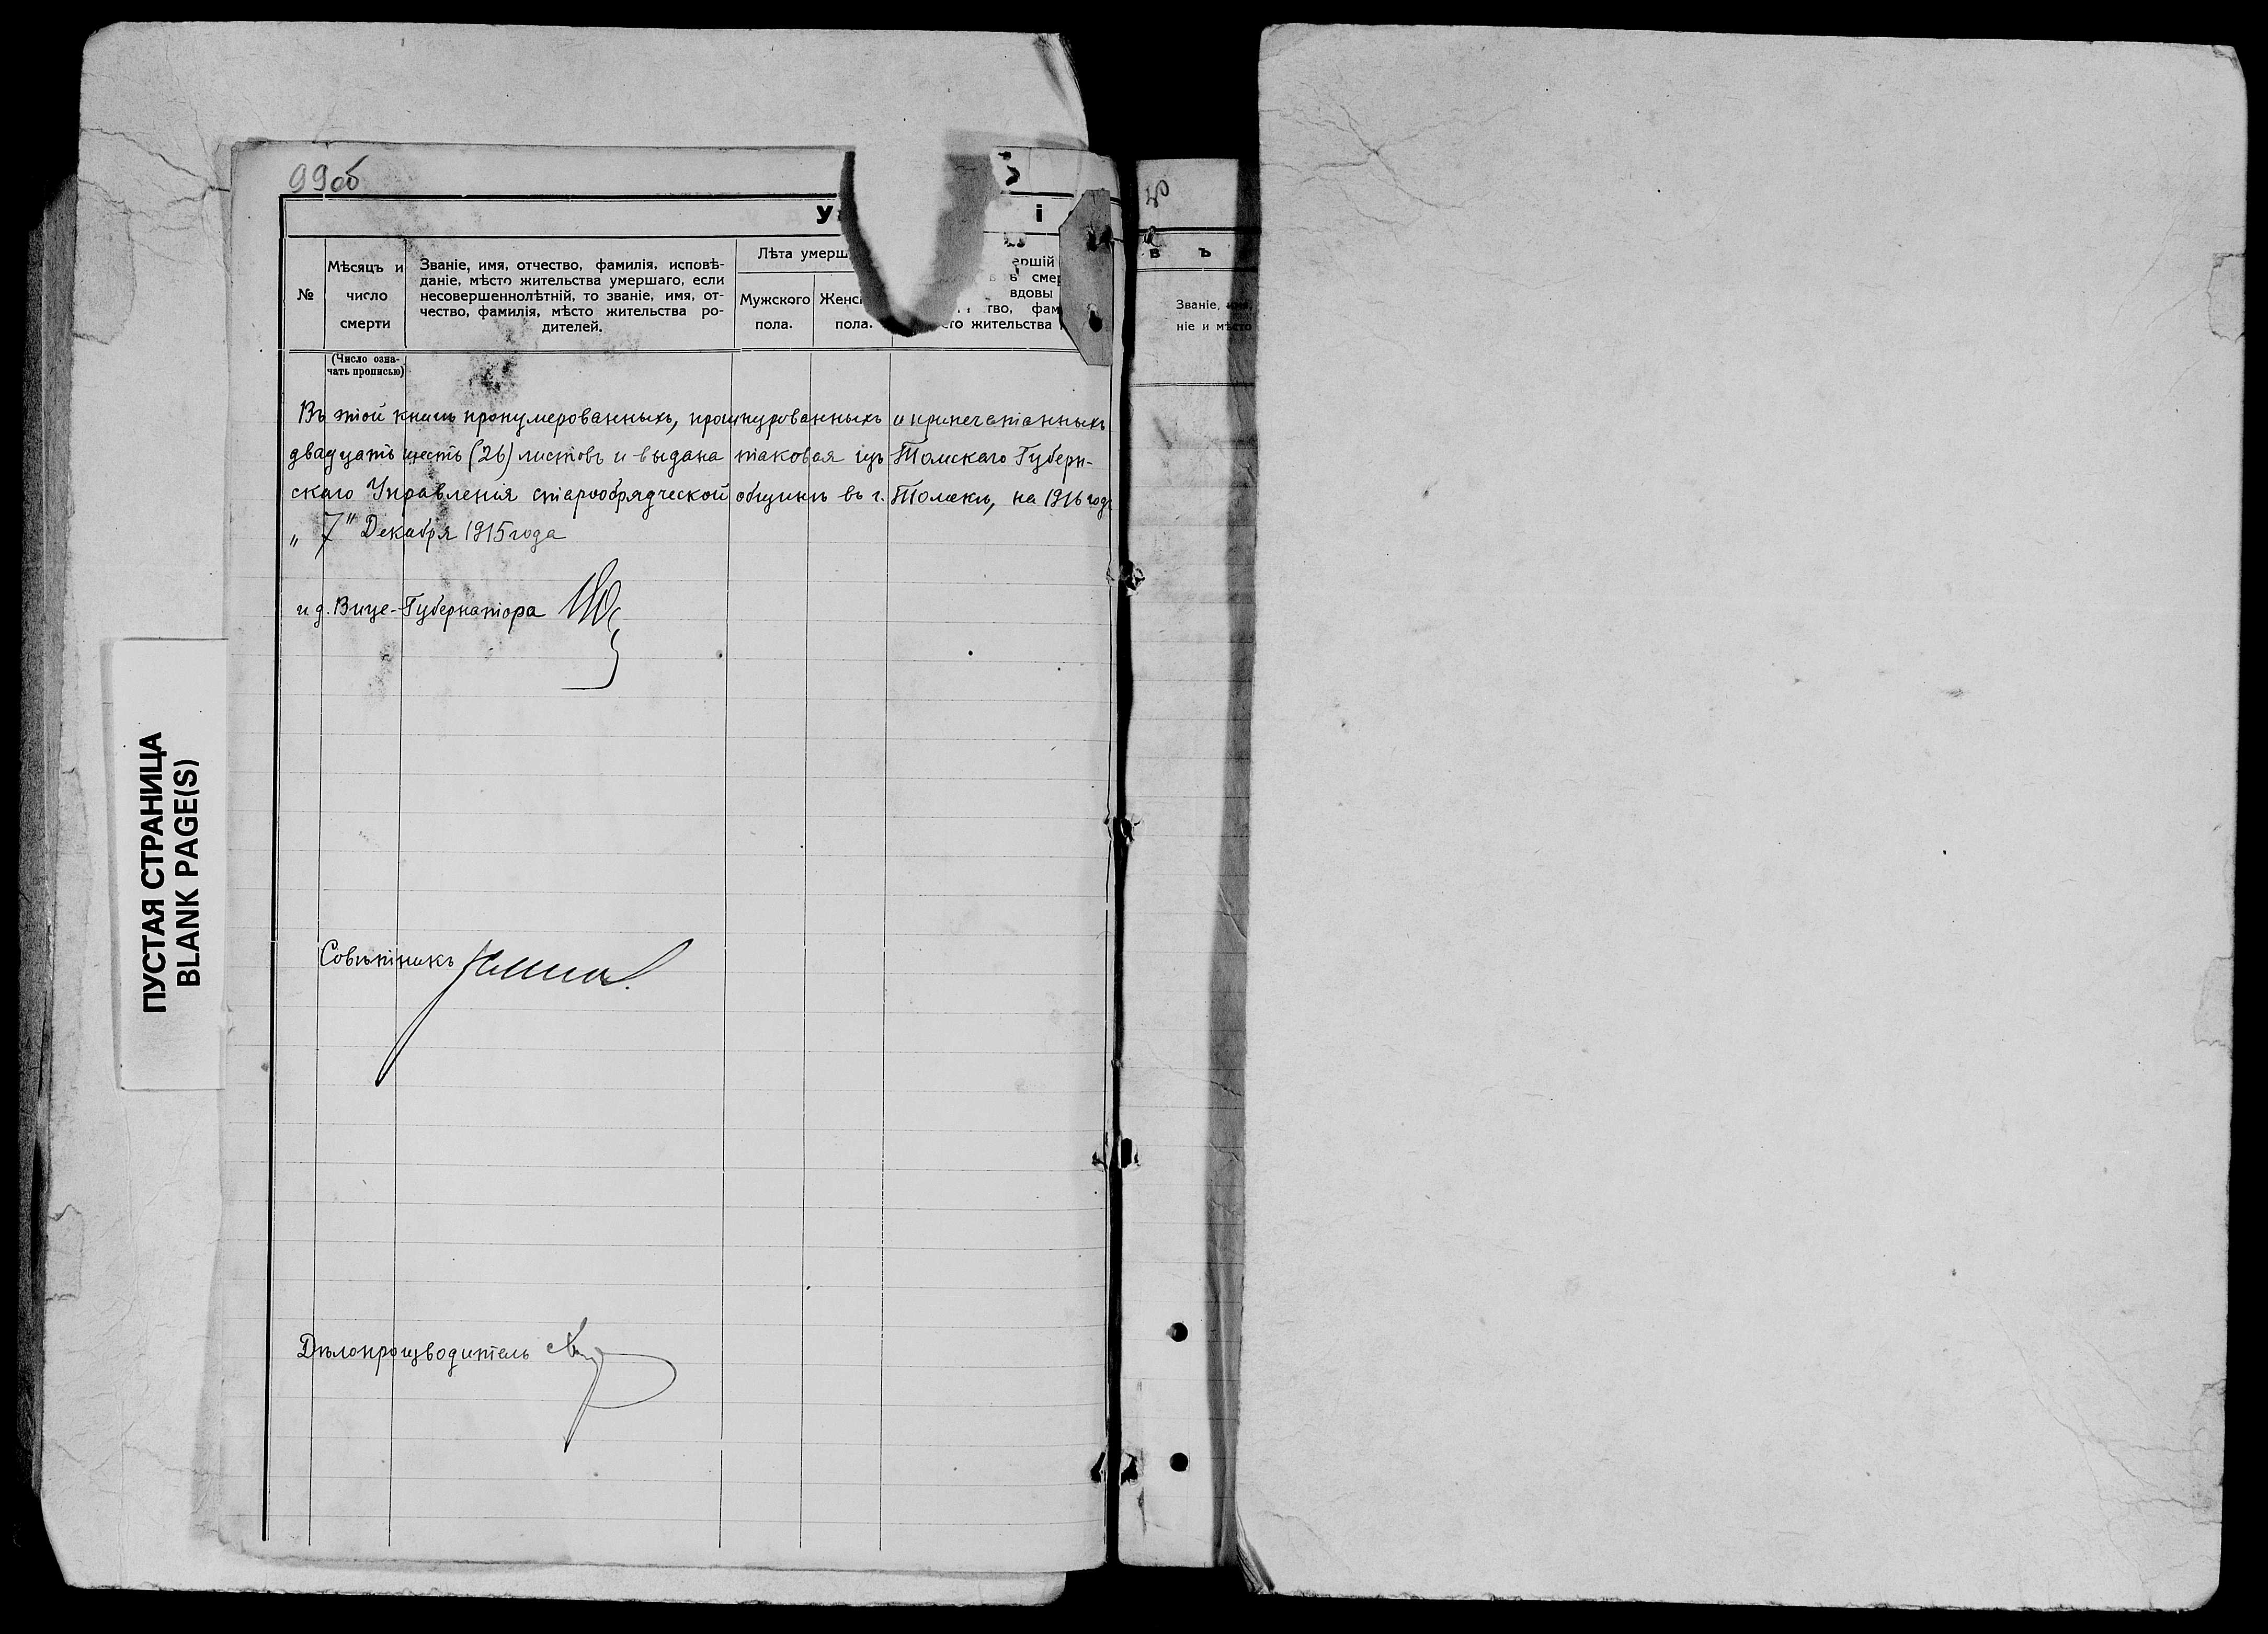 99об
У
і
№
Мѣсяцъ и
число
смерти
Званіе, имя, отчество, фамилія, исповѣ-
даніе, мѣсто жительства умершаго, если
несовершеннолѣтній, то званіе, имя, от-
чество, фамилія, мѣсто жительства ро-
дителей.
Лѣта умерш
Мужского
пола.
Женс
пола.
ершій
смер
вдовы
тво, фам
го жительства
(Число озна-
чать прописью)
Въ этой книгѣ пронумерованныхъ, прошнурованныхъ и припечатанныхъ
двадцать шесть (26) листовъ и выдана таковая изъ Томскаго Губерн-
скаго Управленія старообрядческой общинѣ въ г. Томскѣ, на 1916 годъ
„ 7" Декабря 1915 года
и д. Вице-Губернатора
Совѣтникъ
Дѣлопроизводитель
ПУСТАЯ СТРАНИЦА
BLANK PAGE(S)
в ъ
Званіе, имя,
ніе и мѣсто